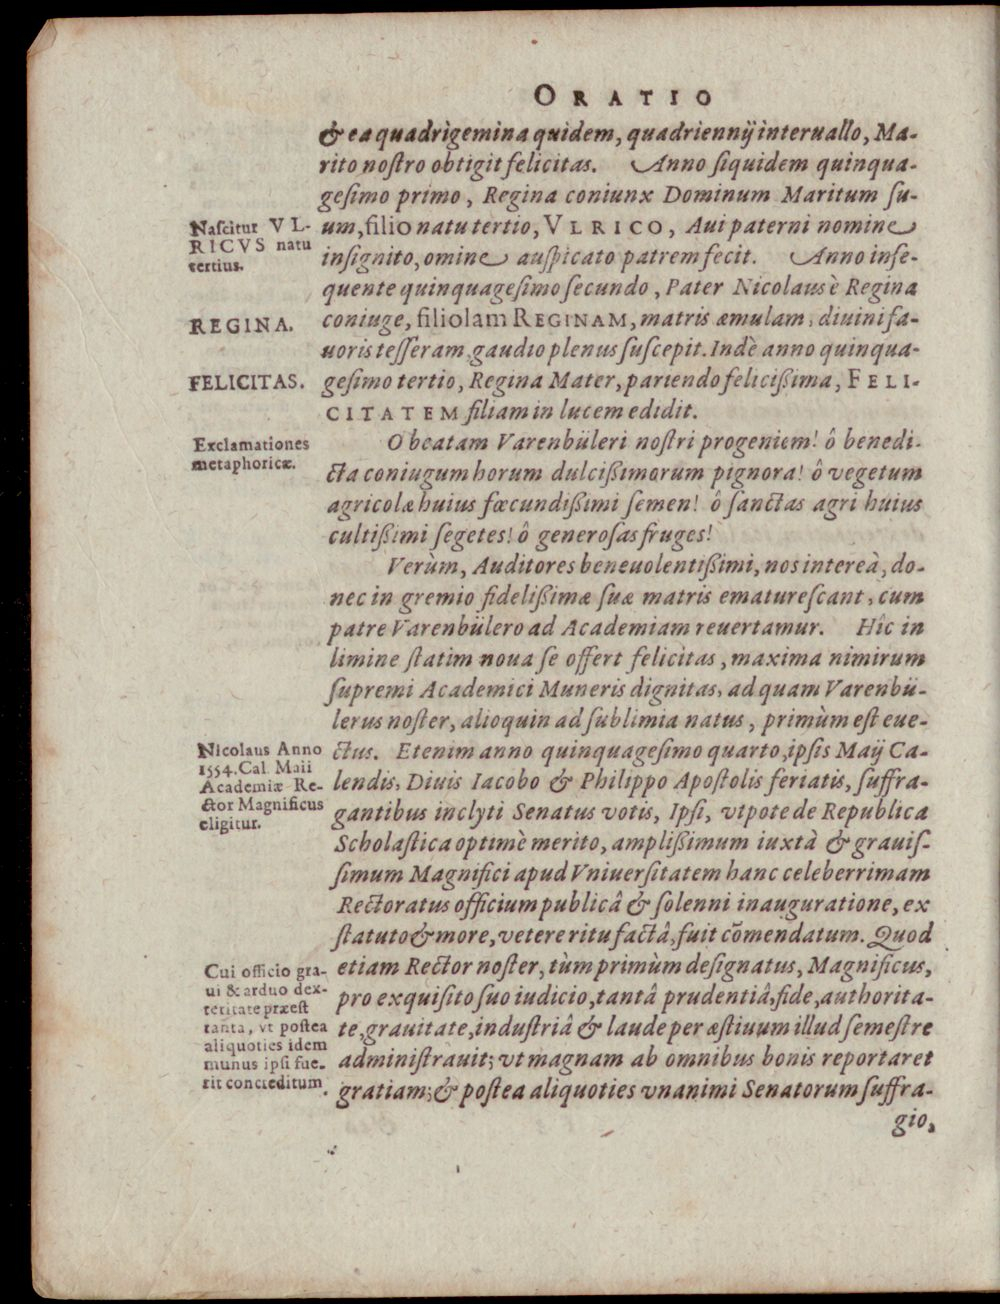 ORATIO
& ea quadrigemina quidem, quadriennij interuallo, Ma-
rito nostro obtigit felicitas. Anno siquidem quinqua-
gesimo primo, Regina coniunx Dominum Maritum su-
um, filio natu tertio, VLRICO, Aui paterni nomine
insignito, omine auspicato patrem fecit. Anno inse-
quente quinquagesimo secundo, Pater Nicolaus è Regina
coniuge, filiolam REGINAM, matris æmulam, diuini fa-
uoris tesseram, gaudio plenus suscepit. Indè anno quinqua-
gesimo tertio, Regina Mater, pariendo felicißima, FELI-
CITATEM filiam in lucem edidit.
O beatam Varenbüleri nostri progeniem! ô benedi-
cta coniugum horum dulcißimorum pignora! ô vegetum
agricolæ huius fœcundißimi semen! ô sanctas agri huius
cultißimi segetes! ô generosas fruges!
Verùm, Auditores beneuolentißimi, nos intereà, do-
nec in gremio fidelißimæ suæ matris ematurescant, cum
patre Varenbülero ad Academiam reuertamur. Hîc in
limine statim noua se offert felicitas, maxima nimirum
supremi Academici Muneris dignitas, ad quam Varenbü-
lerus noster, alioquin ad sublimia natus, primùm est eue-
ctus. Etenim anno quinquagesimo quarto, ipsis Maij Ca-
lendis, Diuis Iacobo & Philippo Apostolis feriatis, suffra-
gantibus inclyti Senatus votis, Ipsi, vtpote de Republica
Scholastica optimè merito, amplißimum iuxtà & grauis-
simum Magnifici apud Vniuersitatem hanc celeberrimam
Rectoratus officium publicâ & solenni inauguratione, ex
statuto & more, vetere ritu factâ, fuit cõmendatum. Quod
etiam Rector noster, tùm primùm designatus, Magnificus,
pro exquisito suo iudicio, tantâ prudentiâ, fide, authorita-
te, grauitate, industriâ & laude per æstiuum illud semestre
administrauit; vt magnam ab omnibus bonis reportaret
gratiam; & postea aliquoties vnanimi Senatorum suffra-
gio,
Nascitur VL-
RICVS natu
tertius.
REGINA.
FELICITAS.
Exclamationes
metaphoricæ.
Nicolaus Anno
1554. Cal. Maii
Academiæ Re-
ctor Magnificus
eligitur.
Cui officio gra-
ui & arduo dex-
teritate præest
tanta, vt postea
aliquoties idem
munus ipsi fue-
rit concreditum.